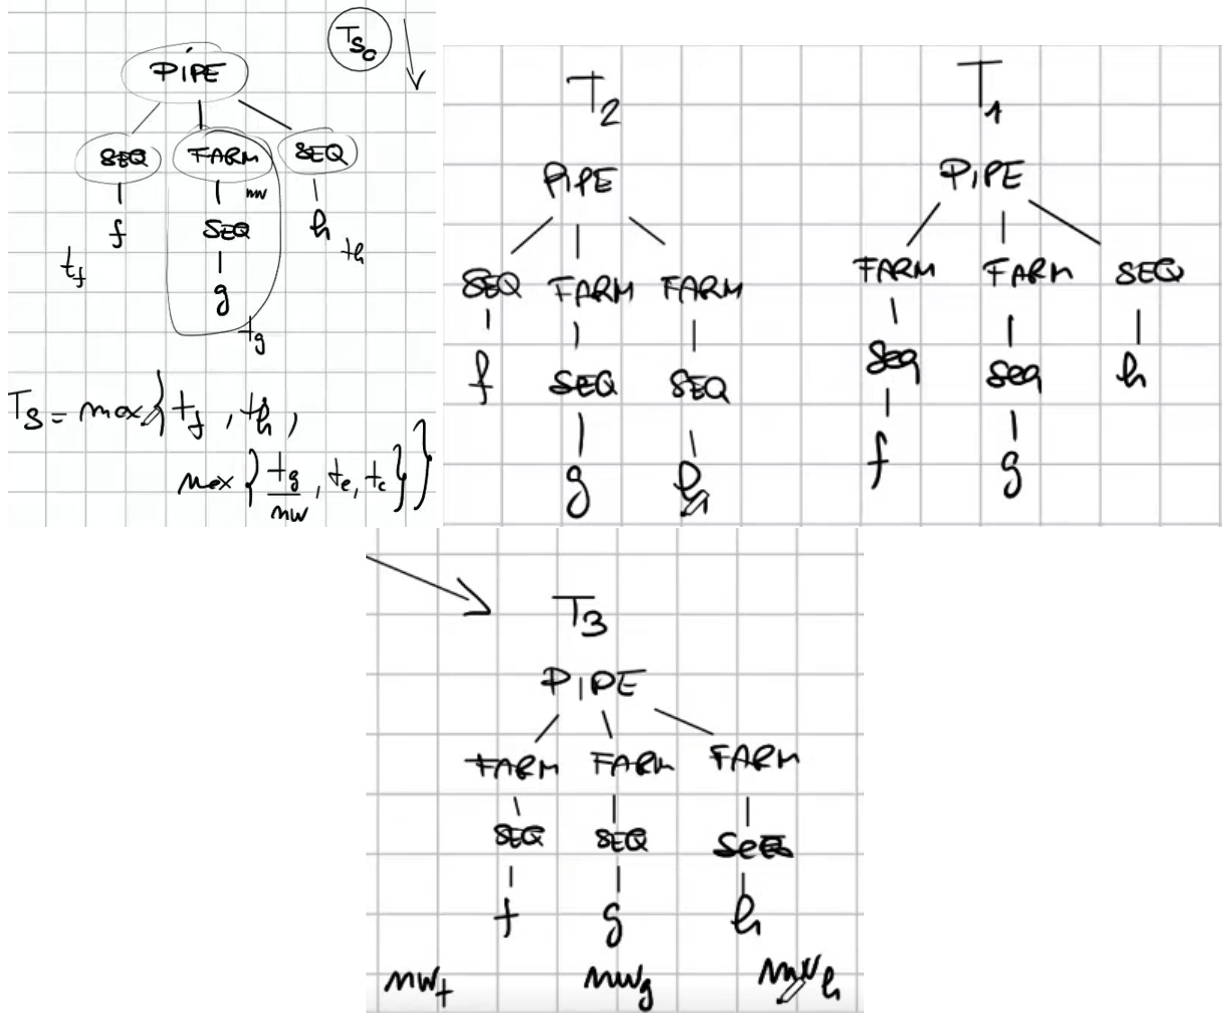 T_{S_0}
PIPE
SEQ FARM SEQ
nw
f SEQ h
t_f g t_h
t_g
T_S = max { t_f , t_h ,
max { t_g / nw , t_e , t_c } }
T_2
PIPE
SEQ FARM FARM
f SEQ SEQ
g h
T_1
PIPE
FARM FARM SEQ
SEQ SEQ h
f g
T_3
PIPE
FARM FARM FARM
SEQ SEQ SEQ
f g h
nw_f nw_g nw_h